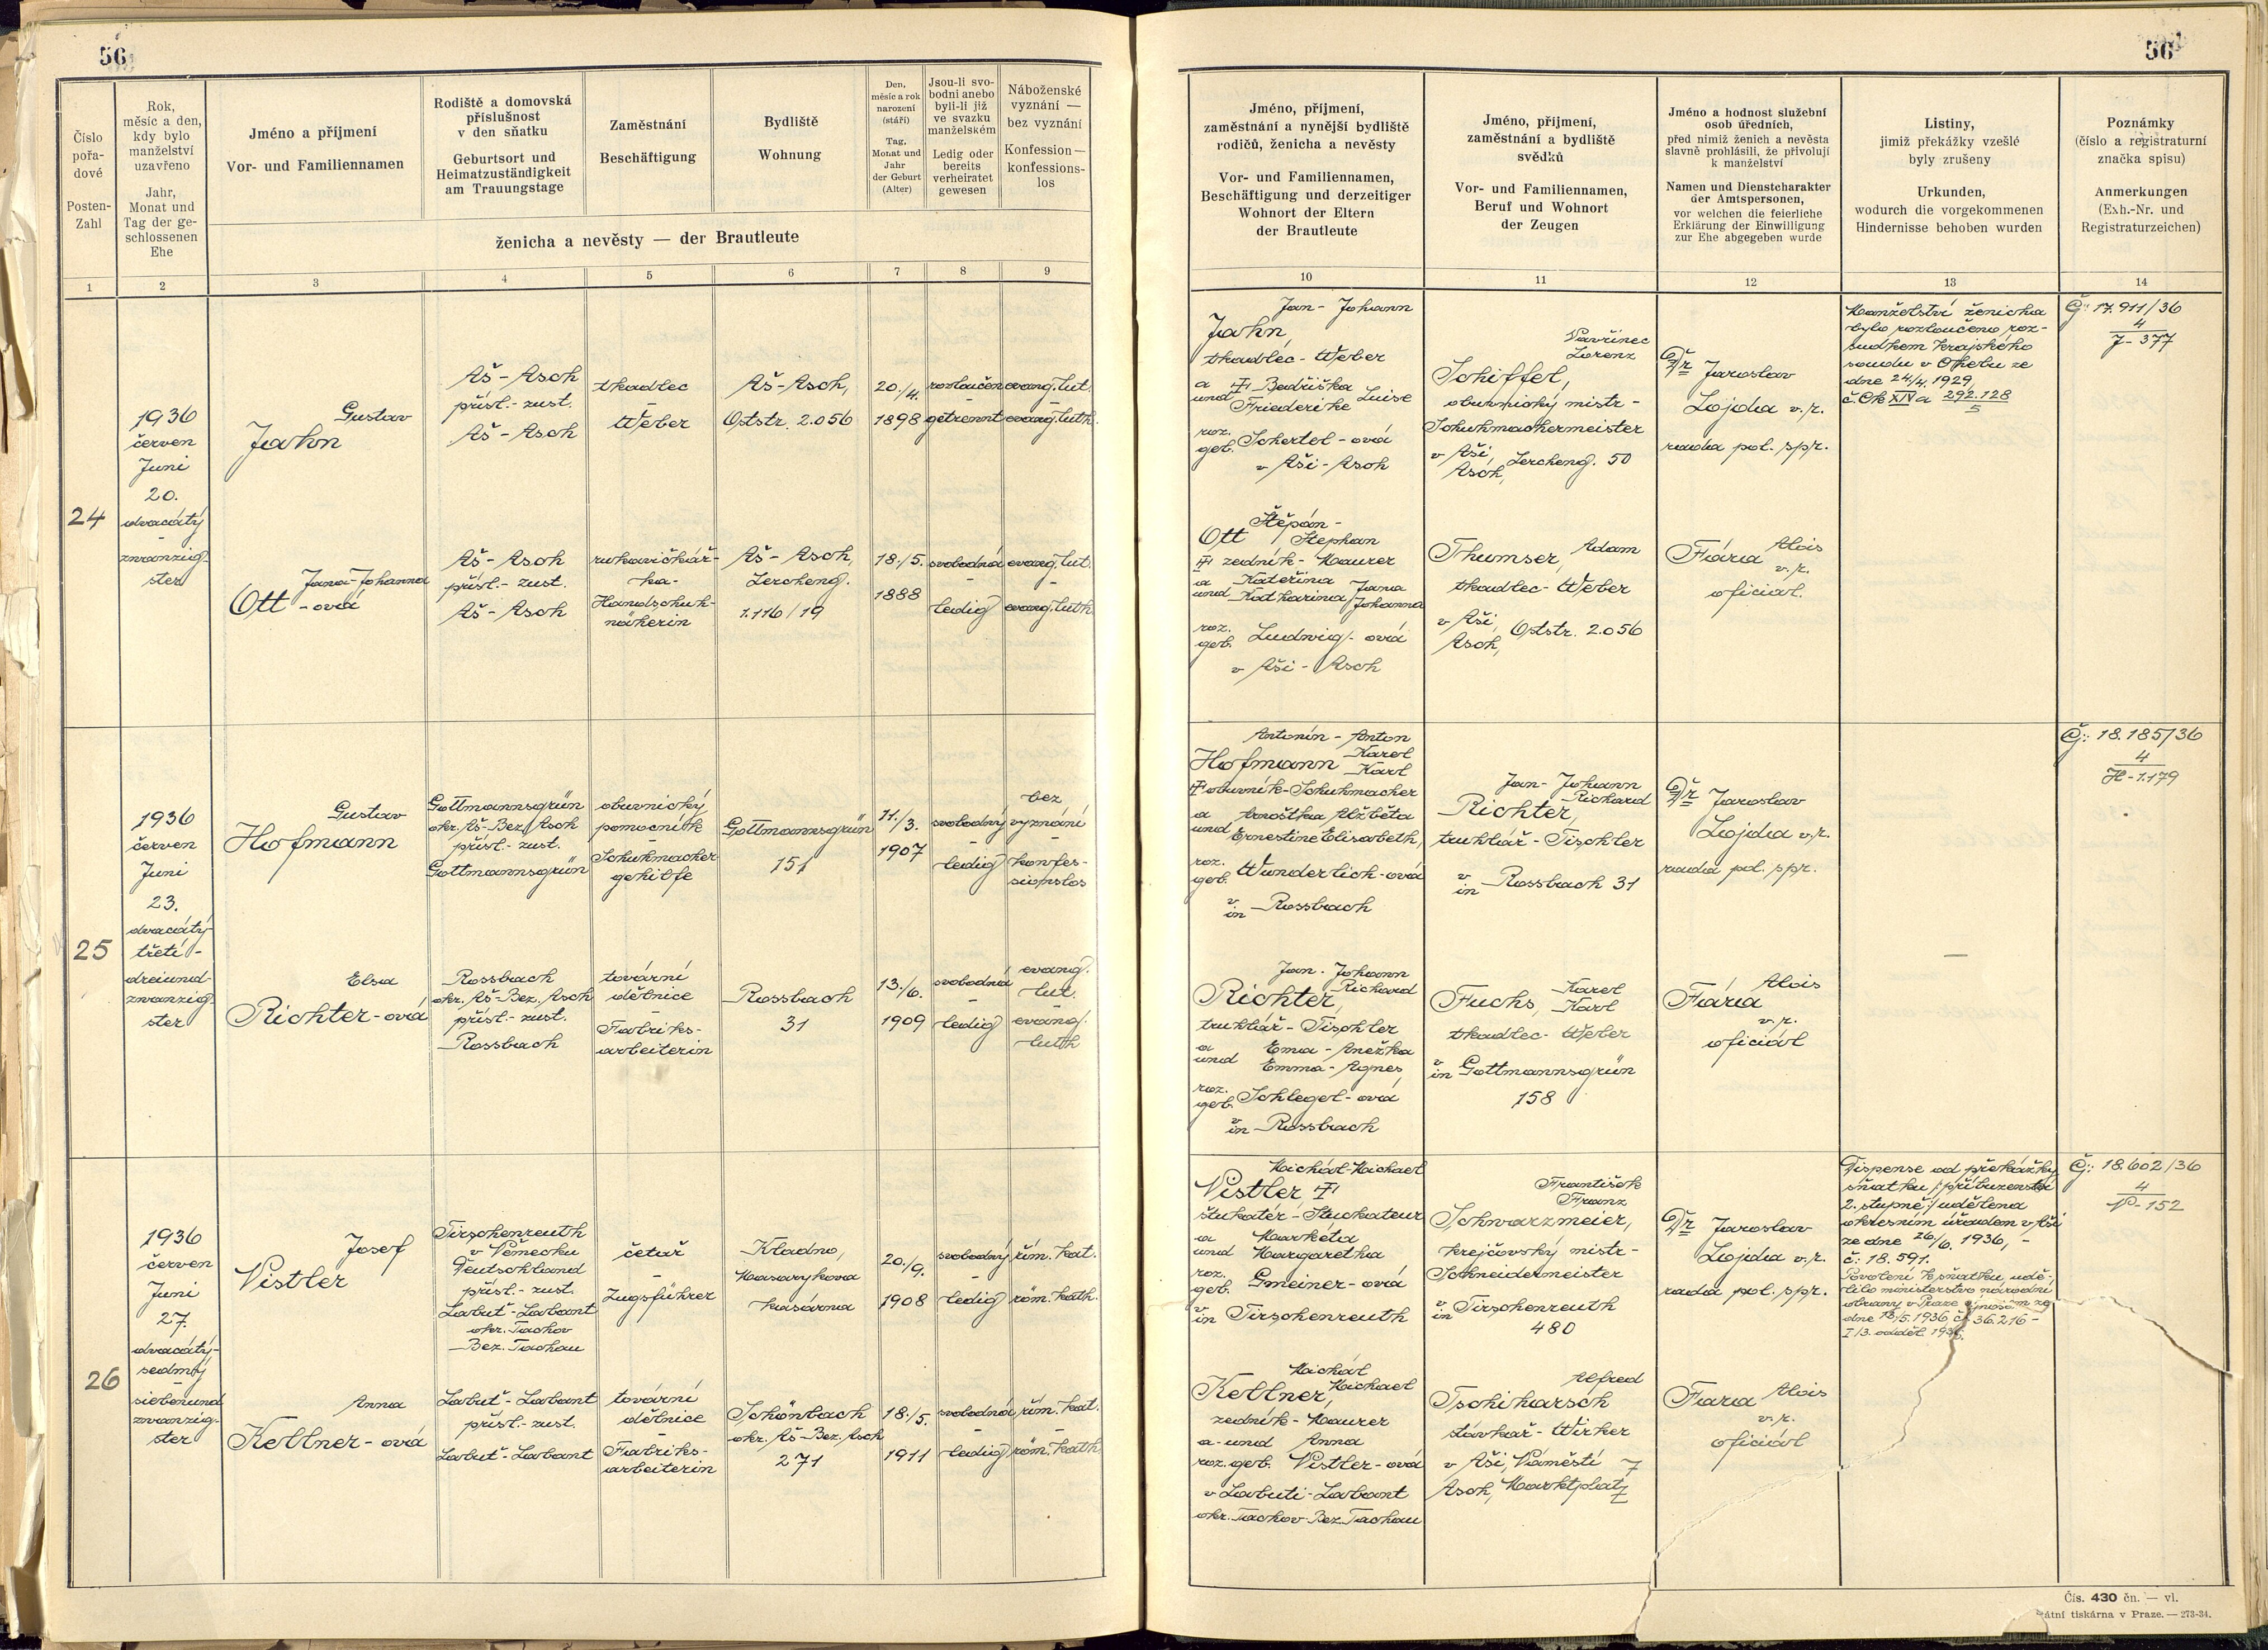 56
Číslo
pořa-
dové
Posten-
Zahl
Rok,
měsíc a den,
kdy bylo
manželství
uzavřeno
Jahr,
Monat und
Tag der ge-
schlossenen
Ehe
Jméno a příjmení
Vor- und Familiennamen
Rodiště a domovská
příslušnost
v den sňatku
Geburtsort und
Heimatzuständigkeit
am Trauungstage
Zaměstnání
Beschäftigung
Bydliště
Wohnung
Den,
měsíc a rok
narození
(stáří)
Tag,
Monat und
Jahr
der Geburt
(Alter)
Jsou-li svo-
bodni anebo
byli-li již
ve svazku
manželském
Ledig oder
bereits
verheiratet
gewesen
Náboženské
vyznání —
bez vyznání
Konfession —
konfessions-
los
ženicha a nevěsty — der Brautleute
1
2
3
4
5
6
7
8
9
24
1936
červen
Juni
20.
dvacátý
-
zwanzig-
ster
Gustav
Jahn
Aš - Asch
přísl.- zust.
Aš - Asch
tkadlec
-
Weber
Aš - Asch,
Oststr. 2.056
20./4.
1898
rozloučen
-
getrennt
evang. lut.
-
evang. luth.
Jana-Johanna
Ott - ová
Aš - Asch
přísl.- zust.
Aš - Asch
rukavičkář-
ka-
Handschuh-
näherin
Aš - Asch,
Lercheng.
1.116/19
18./5.
1888
svobodná
-
ledig
evang. lut.
-
evang. luth.
25
1936
červen
Juni
23.
dvacátý-
třetí -
dreiund-
zwanzig-
ster
Gustav
Hofmann
Gottmannsgrün
okr. Aš-Bez. Asch
přísl.- zust.
Gottmannsgrün
obuvnický
pomocník
-
Schuhmacher
gehilfe
Gottmannsgrün
151
11./3.
1907
svobodný
-
ledig
bez
vyznání
-
konfes-
sionslos
Elsa
Richter - ová
Rossbach
okr. Aš-Bez. Asch
přísl.- zust.
Rossbach
tovární
dělnice
-
Fabriks-
arbeiterin
Rossbach
31
13./6.
1909
svobodná
-
ledig
evang.
lut.
-
evang.
luth
26
1936
červen
Juni
27.
dvacátý-
sedmý
-
siebenund
zwanzig-
ster
Josef
Vistler
Tirschenreuth
v Německu
Deutschland
přísl.- zust.
Labuť - Labant
okr. Tachov
Bez. Tachau
četař
-
Zugsführer
Kladno,
Masarykova
kasárna
20./9.
1908
svobodný
-
ledig
řím. kat.
-
röm. kath.
Anna
Kellner - ová
Labuť - Labant
přísl.- zust.
Labuť - Labant
tovární
dělnice
-
Fabriks-
arbeiterin
Schönbach
okr. Aš-Bez. Asch
271
18./5.
1911
svobodná
-
ledig
řím. kat.
-
röm. kath
56
Jméno, příjmení,
zaměstnání a nynější bydliště
rodičů, ženicha a nevěsty
Vor- und Familiennamen,
Beschäftigung und derzeitiger
Wohnort der Eltern
der Brautleute
Jméno, příjmení,
zaměstnání a bydliště
svědků
Vor- und Familiennamen,
Beruf und Wohnort
der Zeugen
Jméno a hodnost služební
osob úředních,
před nimiž ženich a nevěsta
slavně prohlásili, že přivolují
k manželství
Namen und Dienstcharakter
der Amtspersonen,
vor welchen die feierliche
Erklärung der Einwilligung
zur Ehe abgegeben wurde
Listiny,
jimiž překážky vzešlé
byly zrušeny
Urkunden,
wodurch die vorgekommenen
Hindernisse behoben wurden
Poznámky
(číslo a registraturní
značka spisu)
Anmerkungen
(Exh.-Nr. und
Registraturzeichen)
10
11
12
13
14
Jan - Johann
Jahn,
tkadlec - Weber
a und ✝ Bedřiška Luise
Friederike
roz. geb. Schertel - ová
v Aši - Asch
Vavřinec
Lorenz
Schiffel,
obuvnický mistr -
Schuhmachermeister
v Aši, Lercheng. 50
Asch,
Dr Jaroslav
Lojda v.r.
rada pol. spr.
Manželství ženicha
bylo rozloučeno roz-
sudkem krajského
soudu v Chebu ze
dne 24/4. 1929,
č. Ck XIV a 292.128/5
Č: 17.911/36
4
J - 377
Štěpán -
Ott Stephan
✝ zedník - Maurer
a Kateřina Jana
und Katharina Johanna
roz. geb. Ludwig - ová
v Aši - Asch
Thumser, Adam
tkadlec - Weber
v Aši, Oststr. 2.056
Asch,
Fiária Alois
v.r.
oficiál.
Antonín - Anton
Hofmann Karel
Karl
✝ obuvník - Schuhmacher
a Arnoštka Alžběta
und Ernestine Elisabeth,
roz. geb. Wunderlich - ová
v in Rossbach
Jan - Johann
Richter, Richard
truhlář - Tischler
v in Rossbach 31
Dr Jaroslav
Lojda v.r.
rada pol. spr.
—
Č: 18.185/36
4
H - 1.179
Jan - Johann
Richter, Richard
truhlář - Tischler
a Ema - Anežka
und Emma - Agnes
roz. geb. Schlegel - ová
v in Rossbach
Fuchs, Karel
Karl
tkadlec - Weber
v in Gottmannsgrün
158
Fiária Alois
v.r.
oficiál
Michál - Michael
Vistler, ✝
štukatér - Stuckateur
a Markéta
und Margaretha
roz. geb. Gmeiner - ová
v in Tirschenreuth
František
Franz
Schwarzmeier,
krejčovský mistr -
Schneidermeister
v in Tirschenreuth
480
Dr Jaroslav
Lojda v.r.
rada pol. spr.
Dispense od překážky
sňatku /: příbuzenství
2. stupně :/ udělena
okresním úřadem v Aši
ze dne 26/6. 1936, -
č: 18.591.
Povolení k sňatku, udě-
lilo ministerstvo národní
obrany v Praze výnosem ze
dne 13/5. 1936 č. 36.216 -
I/3. odděl. 1936.
Č: 18.602/36
4
V - 152
Michál
Kellner, Michael
zedník - Maurer
a - und Anna
roz. geb. Vistler - ová
v Labuti - Labant
okr. Tachov-Bez. Tachau
Alfred
Tschiharsch
stávkář - Wirker
v Aši, Náměstí 7
Asch, Marktplatz
Fiaria Alois
v.r.
oficiál
Čís. 430 čn. — vl.
átní tiskárna v Praze. — 273-34.